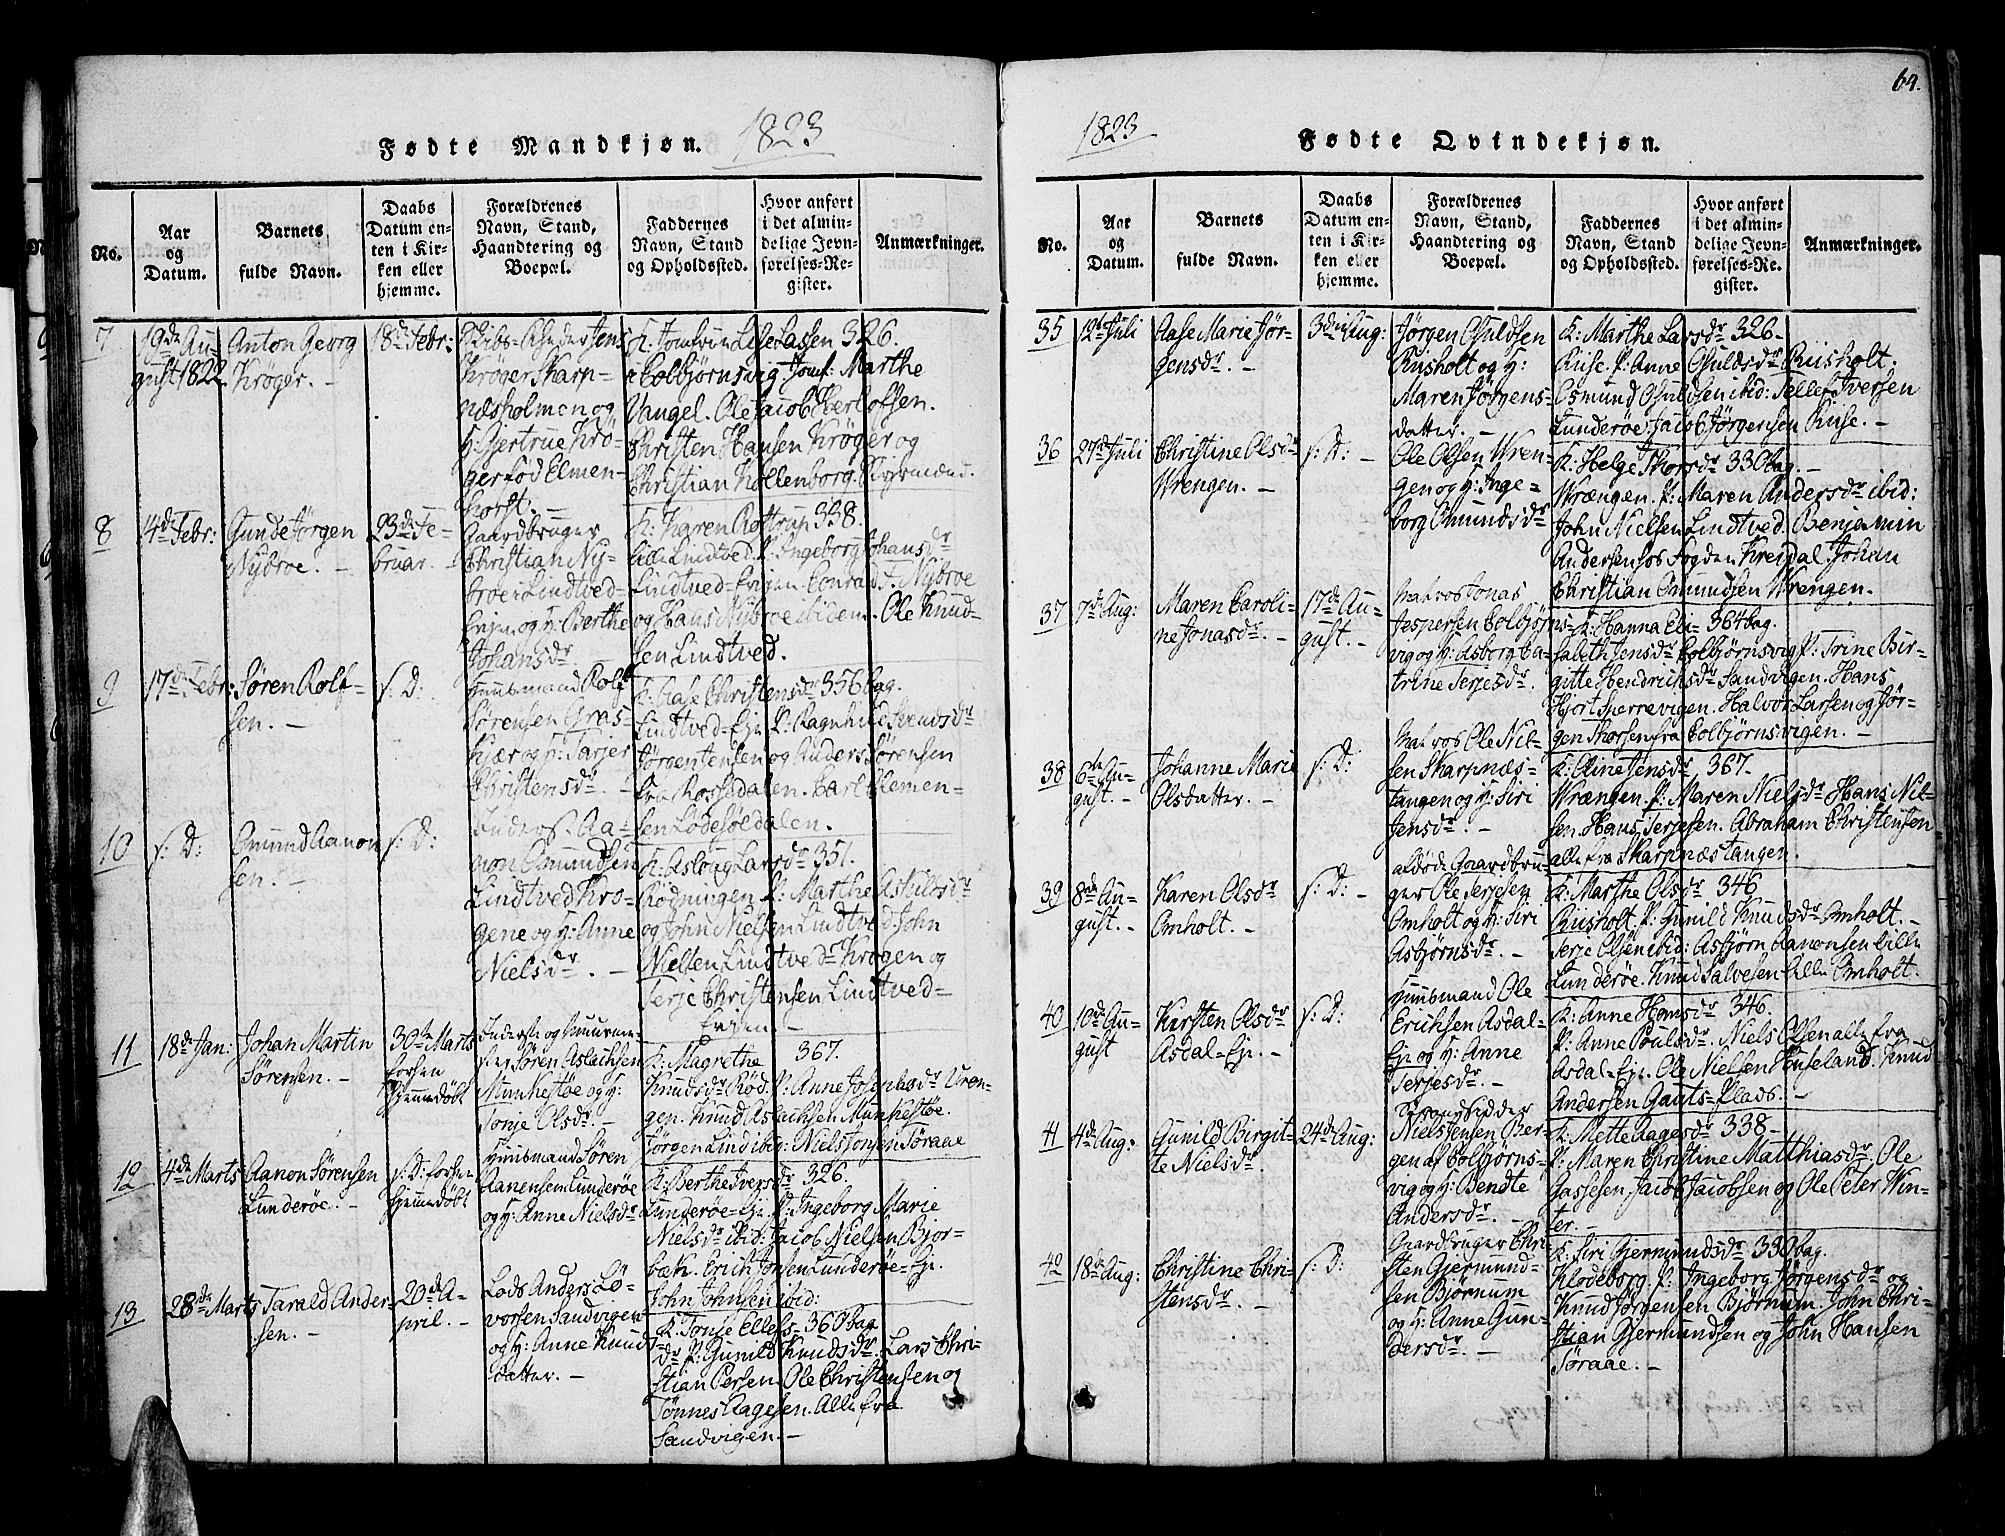 64.
Fødte Mandkjøn. 1823
No.
Aar
og
Datum.
Barnets
fulde Navn.
Daabs
Datum en-
ten i Kir-
ken eller
hjemme.
Forældrenes
Navn, Stand,
Haandtering og
Boepæl.
Faddernes
Navn, Stand
og Opholdssted.
Hvor anført
i det almin-
delige Jevn-
førelses-Re-
gister.
Anmærkninger.
7
19de Au-
gust 1822
Anton Georg
Krøger. -
18de Febr:
Skibs-Rheder Jens
Krøger Skarp-
næsholmen og
H: Gjertrue Krø-
ger fød Elmen-
horst. -
K: Jomfrue Lise Lassen 326.
Colbjørnsvig Jomf: Marthe
Vangel. Ole Jacob Herlofsen.
Christen Hansen Krøger og
Christian Kallenborg.
8
14de Febr:
Gunde Jørgen
Nybroe. -
23de Fe-
bruar. -
Gaardbruger
Christian Ny-
broe Lindtved-
Eien og H: Berthe
Johansdr.
K: Karen Rottrup 338.
Lille Lindtved P: Ingeborg Johansdr
Lindtved-Eien Conrad F. Nybroe
og Hans Nybroe ibidem. Ole Knud-
sen Lindtved.
9
17de Febr:
Søren Rolf-
sen. -
s: D:
Huusmand Rolf
Sørensen Gras-
kjær og H: Tarjer
Christensdr. -
K: Aase Christensdr 356 bag.
Lindtved-Eje P: Ragnhild Svendsdr
Jørgen Jensen og Anders Sørensen
fra Rossedalen. Carl Clemen-
sen Lødesøldalen.
10
s: D:
Omund Aanon
sen. -
s: D:
Inders: Aa-
non Omundsen
Lindtved Kro-
gene og H: Anne
Nielsdr. -
K: Aslaug Larsdr 351.
Rødningen P: Marthe Askildsdr
og John Nielsen Lindtved. John
Nielsen Lindtvedr Krogen og
Terje Christensen Lindtved-
Eien. -
11
18de Jan:
Johan Martin
Sørensen. -
30te Marts
forhen
hjemmedøbt
Inderste og Muurme-
ster Søren Aslachsen
Munkestøe og H:
Tonje Olsdr. -
K: Magrethe 367.
Knudsdr Rød. P: Anne Josephsdr Vren-
gen. Knud Aslachsen Munkestøe.
Jørgen Lind ibid: Niels Jonsen Tøraae
12
4de Marts
Aanon Sørensen
Lunderøe. -
s: D: forhen
hjemmedøbt
Huusmand Søren
Aanensen Lunderøe
og H: Anne Nielsdr
K: Berthe Iversdr 326.
Lunderøe-Eje P: Ingeborg Marie
Nielsdr ibid: Jacob Nielsen Bjor-
bæk. Erich Jonsen Lunderøe-Eje.
John Johnsen ibid:
13
28de Marts
Tarald Ander-
sen. -
20de A-
pril. -
Lods Anders Lø-
vorsen Sandvigen
og H: Anne Knuds-
datter. -
K: Tonje Ellefs- 360 bag
dr P: Gunild Knudsdr. Lars Chri-
stian Persen. Ole Christensen og
Tønnes Aagesen. Alle fra
Sandvigen. -
1823 Fødte Qvindekjøn.
No.
Aar
og
Datum.
Barnets
fulde Navn.
Daabs
Datum en-
ten i Kir-
ken eller
hjemme.
Forældrenes
Navn, Stand,
Haandtering og
Boepæl.
Faddernes
Navn, Stand
og Opholdssted.
Hvor anført
i det almin-
delige Jevn-
førelses-Re-
gister.
Anmærkninger.
35
12te Juli
Aase Marie Jør-
gensdr. -
3die Aug:
Jørgen Osuldsen
Riisholt og H:
Maren Jørgens-
datter. -
K: Marthe Larsdr 326.
Riise. P: Anne Osuldsdr Riisholt.
Osmund Osuldsen ibid: Tellef Iversen
Lunderøe. Jacob Jørgensen Riise. -
36
27de Juli
Christine Olsdr
Wrengen. -
s: D: -
Ole Olsen Wren-
gen og H: Inge-
borg Omundsdr
K: Helge Thorsdr 330 bag. -
Wrængen. P: Maren Andersdr ibid:
John Nielsen Lindtved. Benjamin
Andersen hos Fogden Kreidal Johan
Christian Omundsen Wrengen.
37
7de Aug:
Maren Caroli-
ne Jonasdr. -
17de Au-
gust. -
Matros Jonas
Jespersen Colbjørns-
vig og H: Asberg Ca-
trine Terjesdr.
K: Hanna Eli- 364 bag.
sabeth Jensdr Colbjørnsvig P: Trine Bir-
gitte Hendrichsdr Sandvigen. Hans
Hjort Sperrevigen. Halvor Larsen og Jør-
gen Thorsen fra Colbjørnsvigen. -
38
6te Au-
gust. -
Johanne Marie
Olsdatter. -
s: D:
Matros Ole Niel-
sen Skarpnæs-
tangen og H: Siri
Jensdr. -
K: Oline Jensdr 367.
Wrængen. P: Maren Nielsdr Hans Niel-
sen. Hans Terjesen. Abraham Christensen
alle fra Skarpnæstangen.
39
8de Au-
gust. -
Karen Olsdr
Omholt. -
s: D: -
afdøde Gaardbru-
ger Ole Terjesen
Omholt og H: Siri
Asbjørnsdr. -
K: Marthe Olsdr 346
Riisholt P: Gunild Knudsdr Omholt. -
Terje Olsen ibid: Asbjørn Aanonsen Lille
Lunderøe. Knud Salvesen Lille Omholt.
40
10de Au-
gust
Karsten Olsdr
Asdal-Eje. -
s: D:
Huusmand Ole
Erichsen Asdal-
Eje og H: Anne
Terjesdr. -
K: Anne Hansdr 346.
P: Anne Poulsdr. Niels Olsen alle fra
Asdal-Eje. Ole Nielsen Huseland. Knud
Andersen Gauts-Plads. -
41
4de Aug:
Gunild Birgit-
te Nielsdr.
24de Aug:
Niels Jensen Ber-
gen af Colbjørns-
vig og H: Bendte
Andersdr. -
K: Mette Aagesdr 338 -
P: Maren Christine Matthiasdr. Ole
Gassesen, Jacob Jacobsen og Ole Peter Win-
ter. -
42
18de Aug:
Christine Chri-
stensdr. -
s: D:
Gaardbruger Chri-
sten Gjermund-
sen Bjørnum
og H: Anne Gun-
dersdr. -
K: Siri Gjermundsdr 330 bag.
Klodeborg. P: Ingeborg Jørgensdr og
Knud Jørgensen Bjørnum. John Chri-
stian Gjermundsen og John Hansen
Tøraae. -